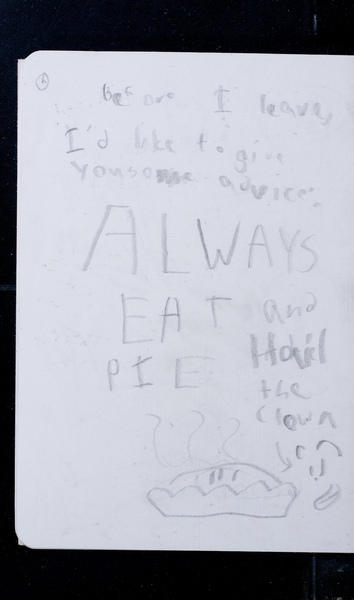 before I leave,
I'd like to give
you some advice:
ALWAYS
EAT and
PIE Hail
the
clown